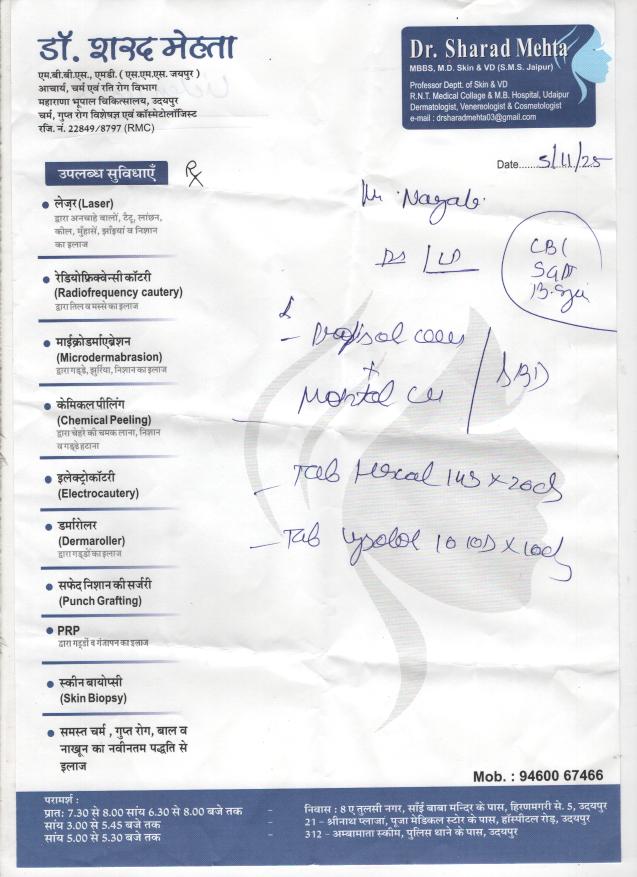 डॉ. शरद मेहता
एम.बी.बी.एस., एमडी. ( एस.एम.एस. जयपुर )
आचार्य, चर्म एवं रति रोग विभाग
महाराणा भूपाल चिकित्सालय, उदयपुर
चर्म, गुप्त रोग विशेषज्ञ एवं कॉस्मेटोलॉजिस्ट
रजि. नं. 22849/8797 (RMC)
Dr. Sharad Mehta
MBBS, M.D. Skin & VD (S.M.S. Jaipur)
Professor Deptt. of Skin & VD
R.N.T. Medical Collage & M.B. Hospital, Udaipur
Dermatologist, Venereologist & Cosmetologist
e-mail : drsharadmehta03@gmail.com
Date......5/11/25
उपलब्ध सुविधाएँ
℞
• लेज़र (Laser)
द्वारा अनचाहे बालों, टैटू, लांछन,
कील, मुँहासें, झाँइयां व निशान
का इलाज
• रेडियोफ्रिक्वेन्सी कॉटरी
(Radiofrequency cautery)
द्वारा तिल व मस्से का इलाज
• माईक्रोडर्माएब्रेशन
(Microdermabrasion)
द्वारा गड्डे, झुर्रिया, निशान का इलाज
• केमिकल पीलिंग
(Chemical Peeling)
द्वारा चेहरे की चमक लाना, निशान
व गड्डे हटाना
• इलेक्ट्रोकॉटरी
(Electrocautery)
• डर्मारोलर
(Dermaroller)
द्वारा गड्डों का इलाज
• सफेद निशान की सर्जरी
(Punch Grafting)
• PRP
द्वारा गड्डों व गंजापन का इलाज
• स्कीन बायोप्सी
(Skin Biopsy)
• समस्त चर्म , गुप्त रोग, बाल व
नाखून का नवीनतम पद्धति से
इलाज
CBC
+
- Tab 1 x 20d
- Tab 10 1OD x 10d
Mob. : 94600 67466
परामर्श :
प्रातः 7.30 से 8.00 सांय 6.30 से 8.00 बजे तक - निवास : 8 ए तुलसी नगर, साँई बाबा मन्दिर के पास, हिरणमगरी से. 5, उदयपुर
सांय 3.00 से 5.45 बजे तक - 21 – श्रीनाथ प्लाजा, पूजा मेडिकल स्टोर के पास, हॉस्पीटल रोड़, उदयपुर
सांय 5.00 से 5.30 बजे तक - 312 – अम्बामाता स्कीम, पुलिस थाने के पास, उदयपुर